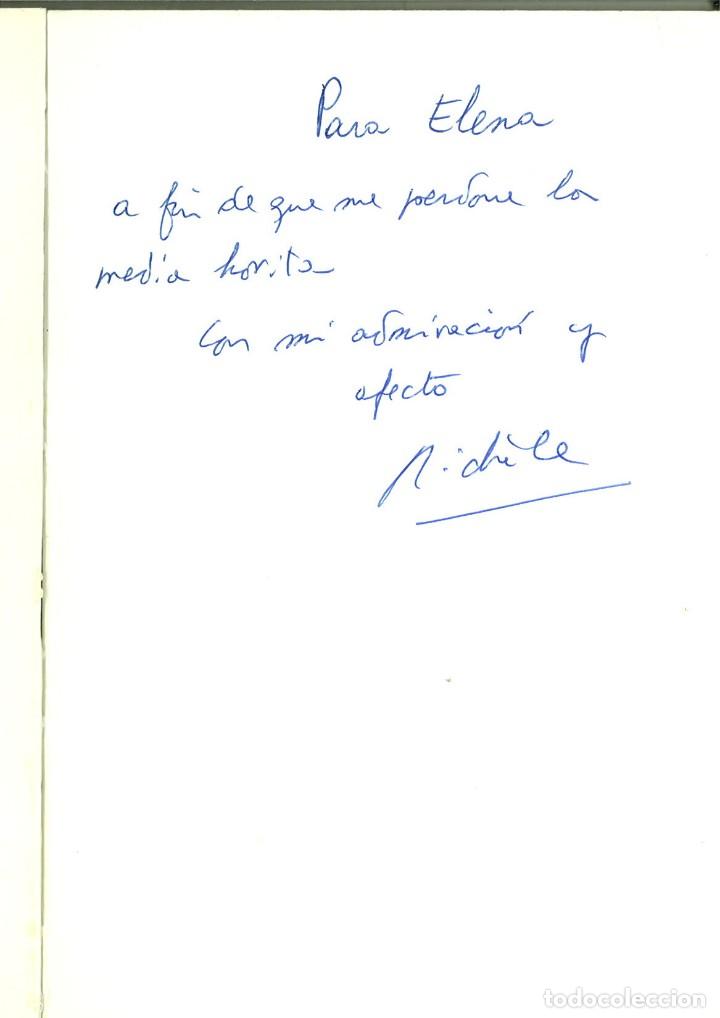 Para Elena
a fin de que me perdone la
media horita
Con mi admiración y
afecto
Michèle
todocoleccion